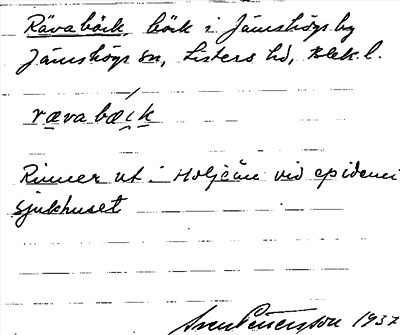 Rävabäck, bäck i Jämshögs by
Jämshögs sn, Listers hd, Blek. l.
rævabæk
Rinner ut i Holjeån vid epidemi
sjukhuset
Sven Pettersson 1937